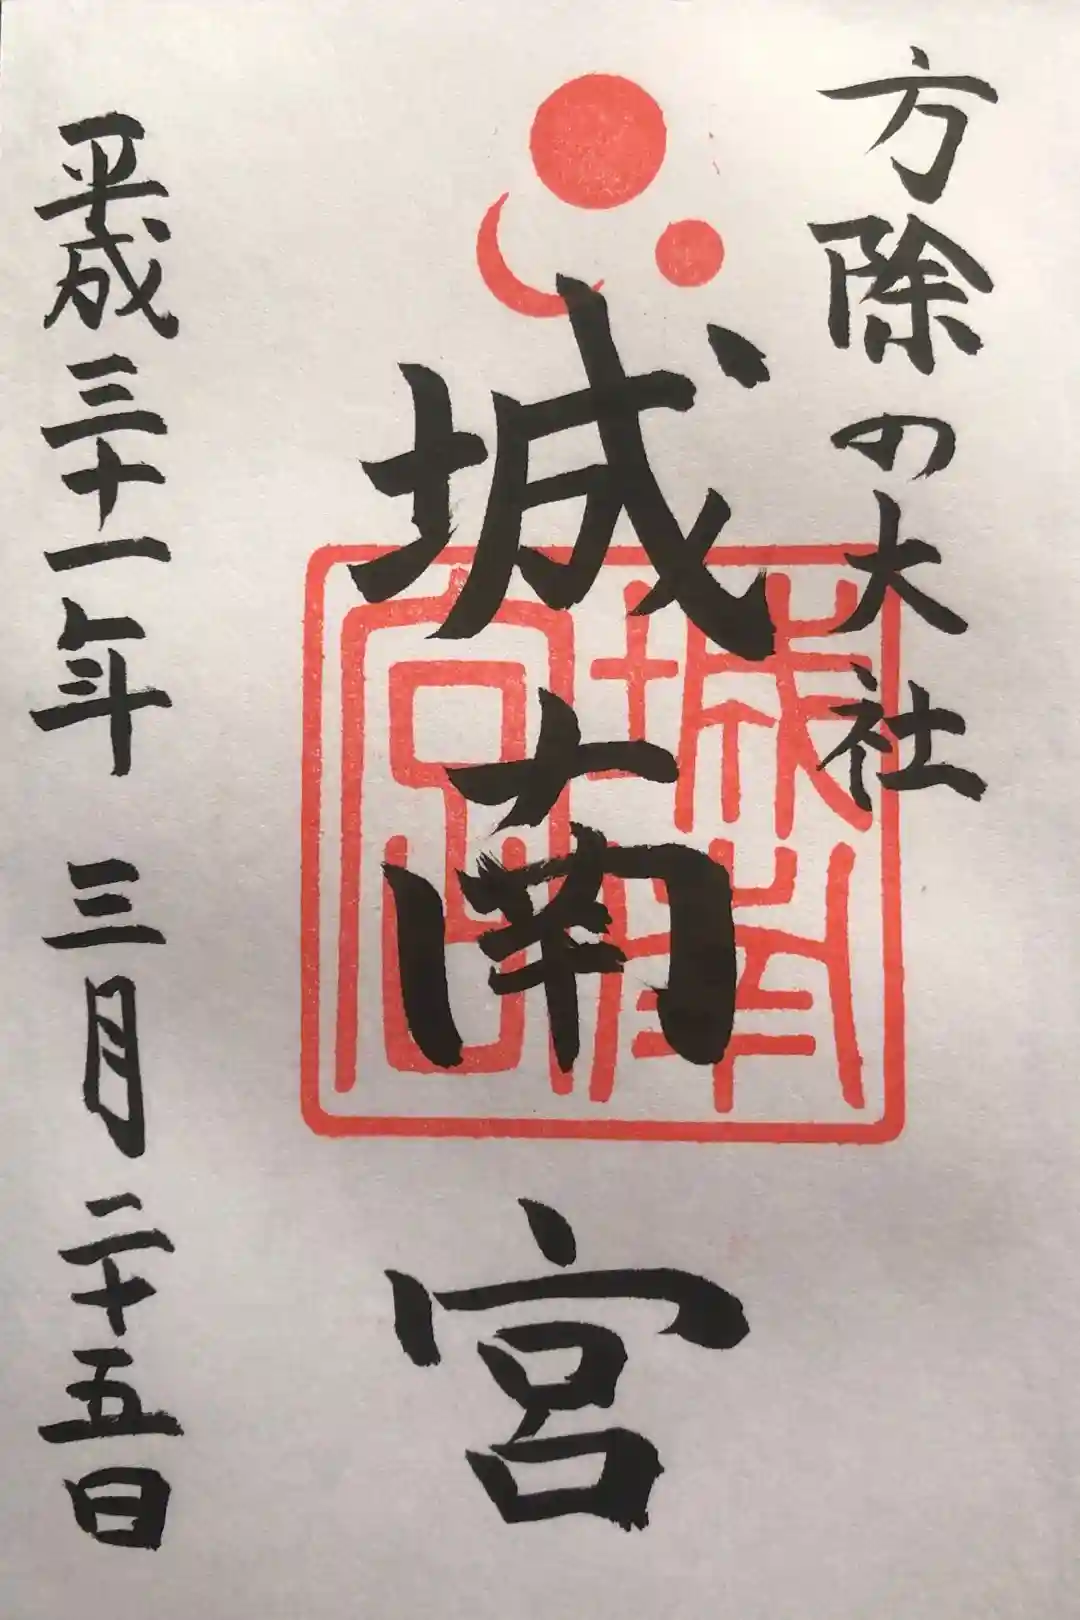 方除の大社
城南宮
城南宮
平成三十一年 三月 二十五日